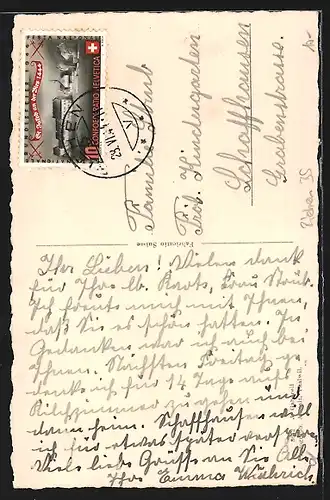 Ihr Lieben! Vielen dank
für Ihre lb. Karte, Frau Straub.
Ich freute mich mit Ihnen,
daß Sie es schön hatten. In
Gedanken war ich auch bei
Ihnen. Nächsten Freitag ge-
denke ich für 14 Tage auf
zugehen und
dann heim. Schaffhausen will
ich für etwas später versparen.
Viele liebe Grüsse an Sie Alle
Ihre Emma
Fabricatio Suisse
Familie Straub
Schaffhausen
Grabenstrasse.
CONFOEDERATIO HELVETICA
10